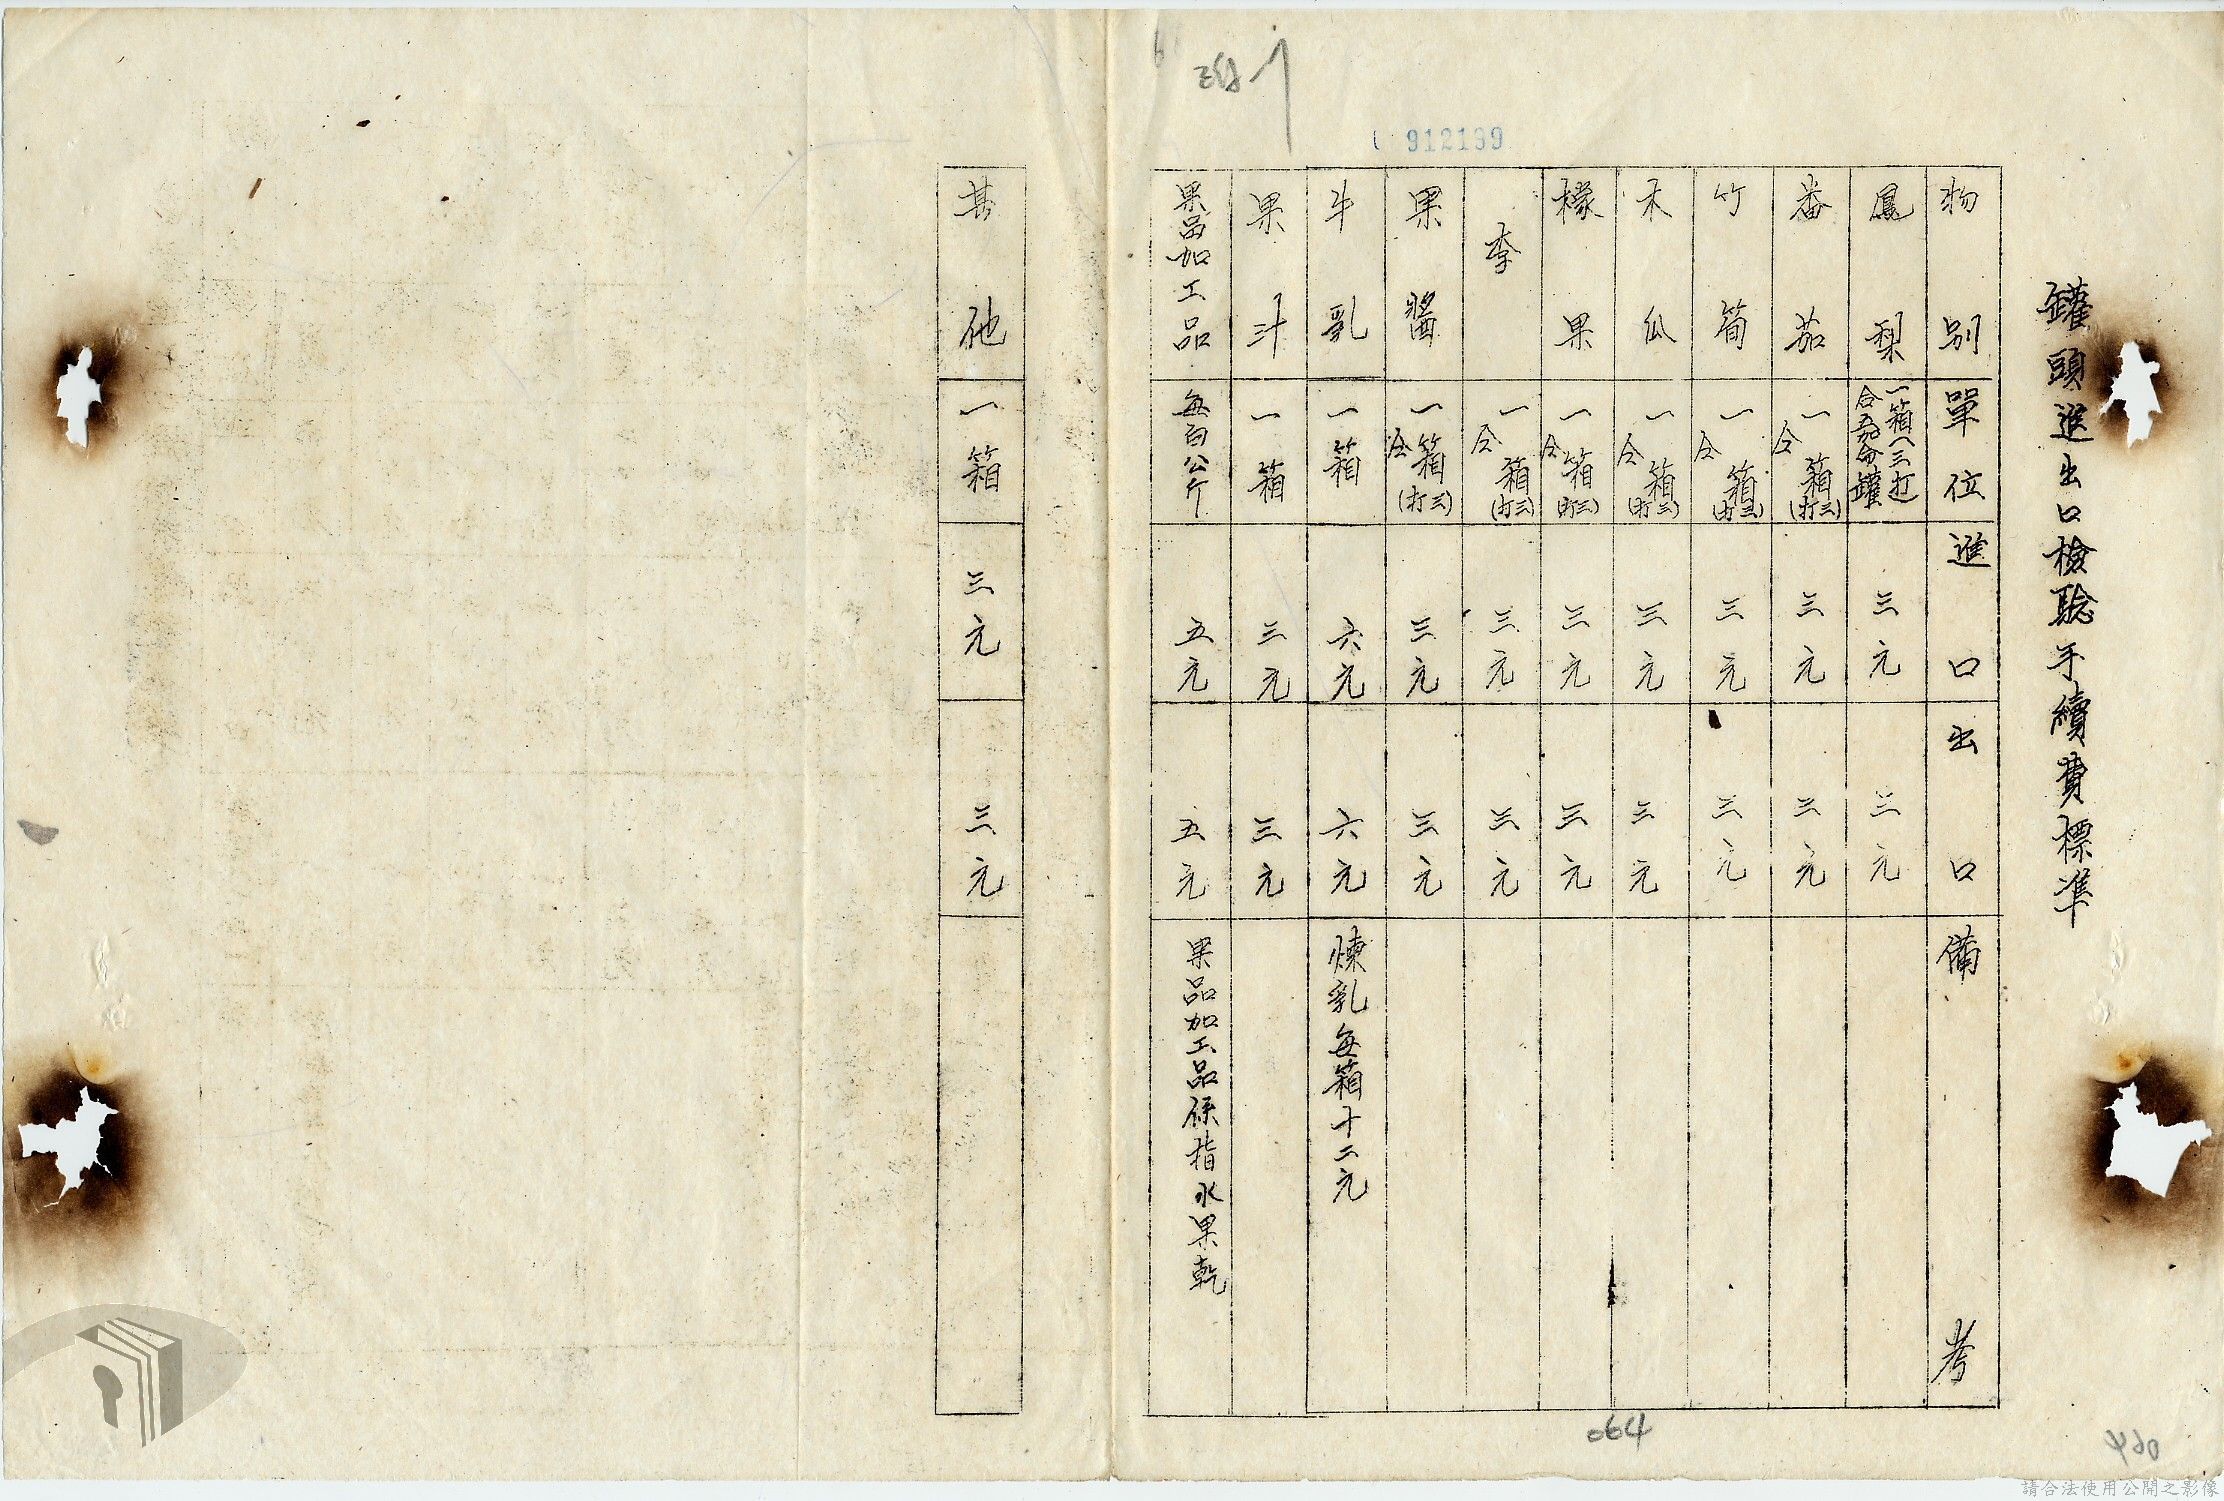 912139
罐頭進出口檢驗手續費標準
物別 單位 進口 出口 備考
鳳梨 一箱(三打) 三元 三元
番茄 一箱(打三)仝 三元 三元
竹筍 一箱(打三)仝 三元 三元
木瓜 一箱(打三)仝 三元 三元
檬果 一箱(打三)仝 三元 三元
李 一箱(打三)仝 三元 三元
果醬 一箱(打三)仝 三元 三元
牛乳 一箱 六元 六元 煉乳每箱十二元
果汁 一箱 三元 三元
果品加工品 每百公斤 五元 五元 果品加工品係指水果乾
其他 一箱 三元 三元
064
064
請合法使用公開之影像